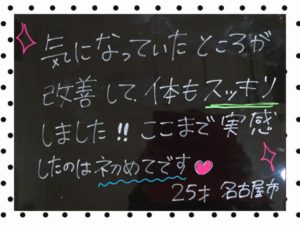 気になっていたところが
改善して、体もスッキリ
しました!! ここまで実感
したのは初めてです
25才 名古屋市